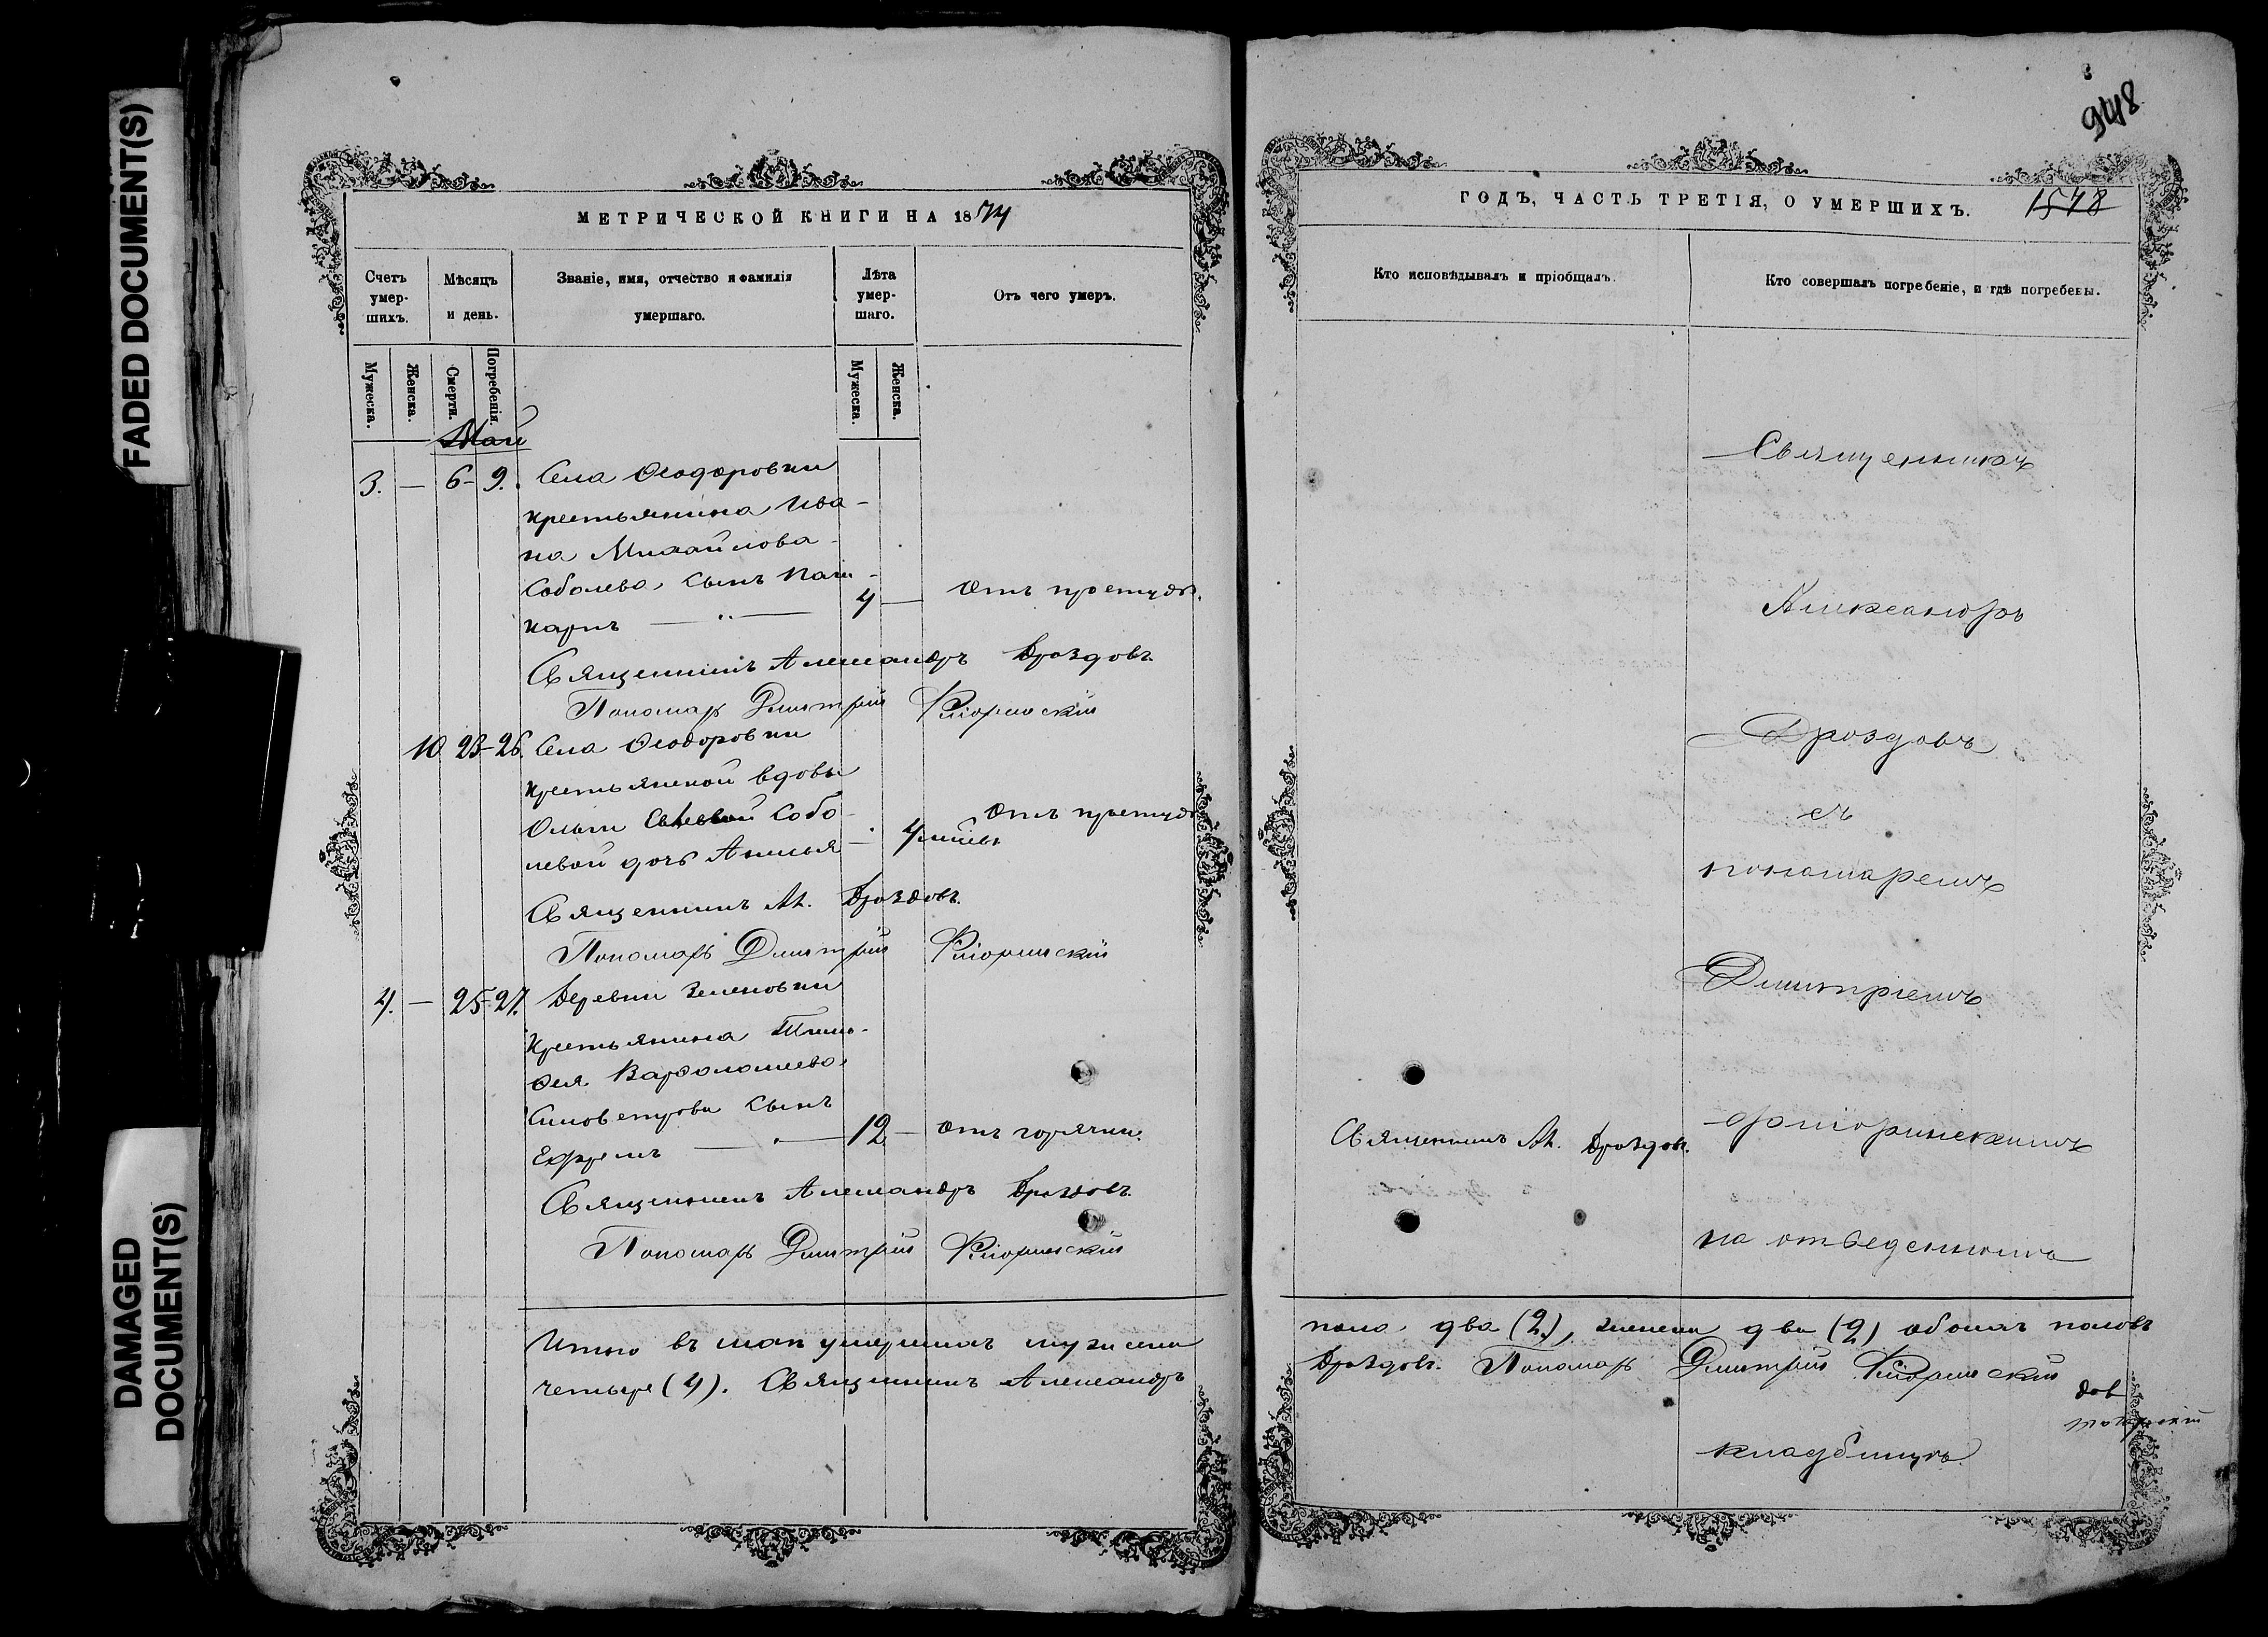 FADED DOCUMENT(S)
DAMAGED
DOCUMENT(S)
МЕТРИЧЕСКОЙ КНИГИ НА 1874
Счетъ
умер-
шихъ.
Мѣсяцъ
и день.
Званіе, имя, отчество и фамилія
умершаго.
Лѣта
умер-
шаго.
Отъ чего умеръ.
Мужеска.
Женска.
Смерти.
Погребенія.
Мужеска.
Женска.
Май
3. — 6 - 9. Села Ѳеодоровки
крестьянина Ива-
на Михайлова
Соболева, сынъ
— " — 4 — Отъ простуды.
Священникъ Александръ Дроздовъ.
Пономарь Дмитрій Флоринскій
10 23-26. Села Ѳеодоровки
крестьянской вдовы
Ольги Собо-
левой дочь — 4 Отъ простуды
Священникъ Ал. Дроздовъ.
Пономарь Дмитрій Флоринскій
4. — 25-27. Деревни Зеленовки
крестьянина Тимо-
ѳея Варѳоломеева
сынъ
Ефремъ — 12 — Отъ горячки.
Священникъ Александръ Дроздовъ.
Пономарь Дмитрій Флоринскій
Итого въ маѣ умершихъ мужеска
четыре (4). Священникъ Александръ
948
ГОДЪ, ЧАСТЬ ТРЕТІЯ, О УМЕРШИХЪ.
1548
Кто исповѣдывалъ и пріобщалъ.
Кто совершалъ погребеніе, и гдѣ погребены.
Священникъ
Александръ
Дроздовъ
съ
пономаремъ
Димитріемъ
Флоринскимъ
Священникъ Ал. Дроздовъ.
на отведенномъ
пола два (2), женска два (2) обоихъ половъ
Дроздовъ. Пономарь Дмитрій Флоринскій
кладбищѣ.